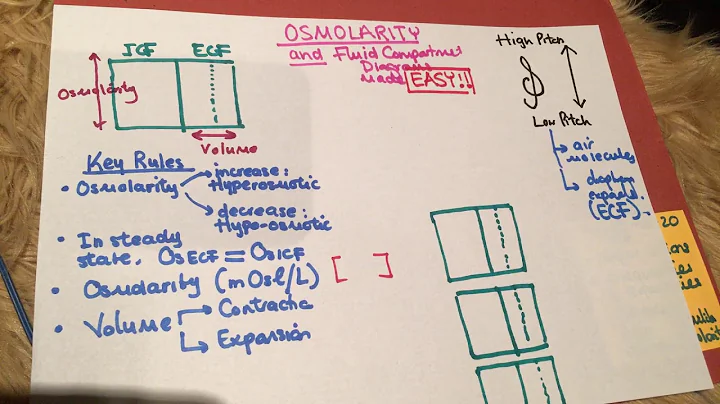 OSMOLARITY
and Fluid Compartment
Diagrams
Made EASY!!
ICF ECF
Osmolarity
Volume
High Pitch
Low Pitch
air
molecules
expands
(ECF).
Key Rules
• Osmolarity
increase:
Hyperosmotic
decrease:
Hypo-osmotic
• In steady
state, OsECF = OsICF
• Osmolarity (mOsl/L) [ ]
• Volume
Expansion
20